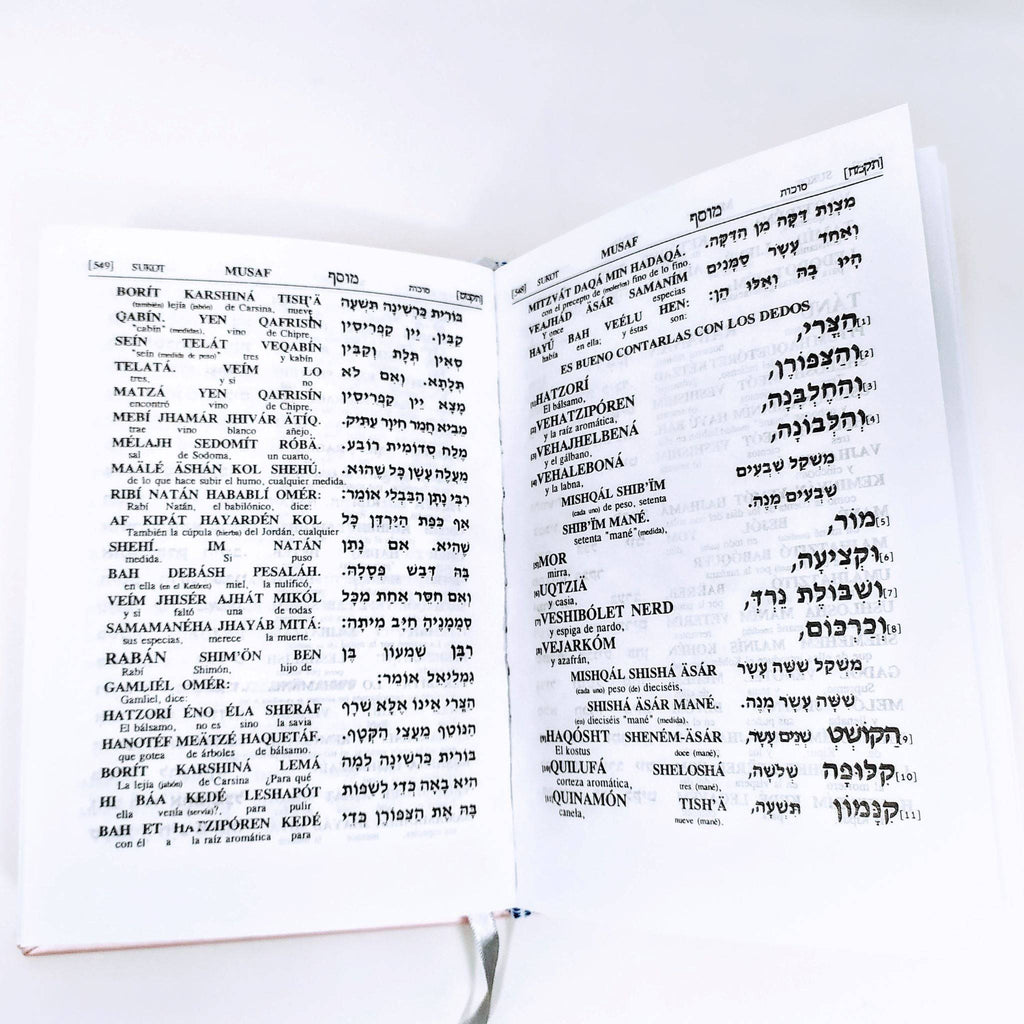 [548] SUKOT MUSAF מוסף סוכות [תקמח]
MITZVÁT DAQÁ MIN HADAQÁ. מִצְוַת דַּקָּה מִן הַדַּקָּה.
con el precepto de (molerlos) fino de lo fino.
VEAJHÁD ÄSÁR SAMANÍM וְאַחַד עָשָׂר סַמָּנִים
Y once especias
HAYÚ BAH VEÉLU HEN: הָיוּ בָהּ וְאֵלּוּ הֵן:
había en ella; y éstas son:
ES BUENO CONTARLAS CON LOS DEDOS
[1]HATZORÍ הַצֳּרִי,[1]
El bálsamo,
[2]VEHATZIPÓREN וְהַצִּפּוֹרֶן,[2]
y la raíz aromática,
[3]VEHAJHELBENÁ וְהַחֶלְבְּנָה,[3]
y el gálbano,
[4]VEHALEBONÁ וְהַלְּבוֹנָה,[4]
y la labna,
MISHQÁL SHIB'ÍM מִשְׁקַל שִׁבְעִים
(cada uno) de peso, setenta
SHIB'ÏM MANÉ. שִׁבְעִים מָנֶה.
setenta "mané" (medida),
[5]MOR מוֹר,[5]
mirra,
[6]UQTZIÄ וּקְצִיעָה,[6]
y casia,
[7]VESHIBÓLET NERD וְשִׁבּוֹלֶת נֵרְדְּ,[7]
y espiga de nardo,
[8]VEJARKÓM וְכַרְכּוֹם,[8]
y azafrán,
MISHQÁL SHISHÁ ÄSÁR מִשְׁקַל שִׁשָּׁה עָשָׂר
(cada uno) peso (de) dieciséis,
SHISHÁ ÄSÁR MANÉ. שִׁשָּׁה עָשָׂר מָנֶה.
(en) dieciséis "mané" (medida).
[9]HAQÓSHT SHENÉM-ÄSÁR שְׁנֵים עָשָׂר, הַקּוֹשְׁטְ[9]
El kostus doce (mané),
[10]QUILUFÁ SHELOSHÁ שְׁלֹשָׁה, קִלּוּפָה[10]
corteza aromática, tres (mané),
[11]QUINAMÓN TISH'Ä תִּשְׁעָה, קִנָּמוֹן[11]
canela, nueve (mané).
[549] SUKOT MUSAF מוסף סוכות [תקמט]
BORÍT KARSHINÁ TISH'Ä בּוֹרִית כַּרְשִׁינָה תִּשְׁעָה
(también) lejía (jabón) de Carsina, nueve
QABÍN. YEN QAFRISÍN קַבִּין. יֵין קַפְרִיסִין
"cabín" (medidas), vino de Chipre,
SEÍN TELÁT VEQABÍN סְאִין תְּלָת וְקַבִּין
"seín (medida de peso)" tres y kabín
TELATÁ. VEÍM LO תְּלָתָא. וְאִם לֹא
tres, y si no
MATZÁ YEN QAFRISÍN מָצָא יֵין קַפְרִיסִין
encontró vino de Chipre,
MEBÍ JHAMÁR JHIVÁR ÄTÍQ. מֵבִיא חֲמַר חִיוָר עַתִּיק.
trae vino blanco añejo,
MÉLAJH SEDOMÍT RÓBÄ. מֶלַח סְדוֹמִית רוֹבַע.
sal de Sodoma, un cuarto,
MAÄLÉ ÄSHÁN KOL SHEHÚ. מַעֲלֶה עָשָׁן כָּל שֶׁהוּא.
de lo que hace subir el humo, cualquier medida.
RIBÍ NATÁN HABABLÍ OMÉR: רִבִּי נָתָן הַבַּבְלִי אוֹמֵר:
Rabí Natán, el babilónico, dice:
AF KIPÁT HAYARDÉN KOL אַף כִּפַּת הַיַּרְדֵּן כָּל
También la cúpula (hierba) del Jordán, cualquier
SHEHÍ. IM NATÁN שֶׁהִיא. אִם נָתַן
medida. Si puso
BAH DEBÁSH PESALÁH. בָּהּ דְּבַשׁ פְּסָלָהּ.
en ella (en el Ketóret) miel, la nulificó,
VEÍM JHISÉR AJHÁT MIKÓL וְאִם חִסַּר אַחַת מִכָּל
y si faltó una de todas
SAMAMANÉHA JHAYÁB MITÁ: סַמְמָנֶיהָ חַיָּב מִיתָה:
sus especias, merece la muerte.
RABÁN SHIM'ÓN BEN רַבָּן שִׁמְעוֹן בֶּן
Rabí Shimón, hijo de
GAMLIÉL OMÉR: גַּמְלִיאֵל אוֹמֵר:
Gamliel, dice:
HATZORÍ ÉNO ÉLA SHERÁF הַצֳּרִי אֵינוֹ אֶלָּא שְׂרָף
El bálsamo, no es sino la savia
HANOTÉF MEÄTZÉ HAQUETÁF. הַנּוֹטֵף מֵעֲצֵי הַקְּטָף.
que gotea de árboles de bálsamo.
BORÍT KARSHINÁ LEMÁ בּוֹרִית כַּרְשִׁינָה לְמָה
La lejía (jabón) de Carsina ¿Para qué
HI BÁA KEDÉ LESHAPÓT הִיא בָאָה כְּדֵי לְשַׁפּוֹת
ella venía (servía)?, para pulir
BAH ET HATZIPÓREN KEDÉ בָּהּ אֶת הַצִּפּוֹרֶן כְּדֵי
con él a la raíz aromática para